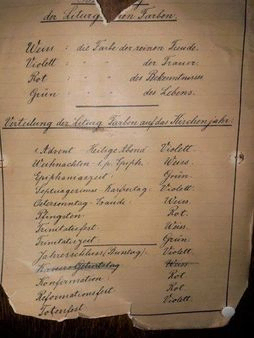 der Liturgischen Farben.
Weiss : die Farbe der reinen Freude.
Violett : der Trauer.
Rot : des Bekenntnisses
Grün : des Lebens.
Verteilung der Liturg. Farben auf das Kirchenjahr:
Advent - Heilige Abend Violett.
Weihnachten - Epiph. Weiss.
Epiphaniaszeit Grün.
Septuagesimae - Karsamtag: Violett.
Ostersonntag - Weiss.
Pfingsten Rot.
Trinitatisfest Weiss.
Trinitatiszeit Grün.
Jahresschluss, (Busstag). Violett.
Kaisers Geburtstag Weiss
Konfirmation: Rot
Reformationsfest. Rot.
Totenfest. Violett.